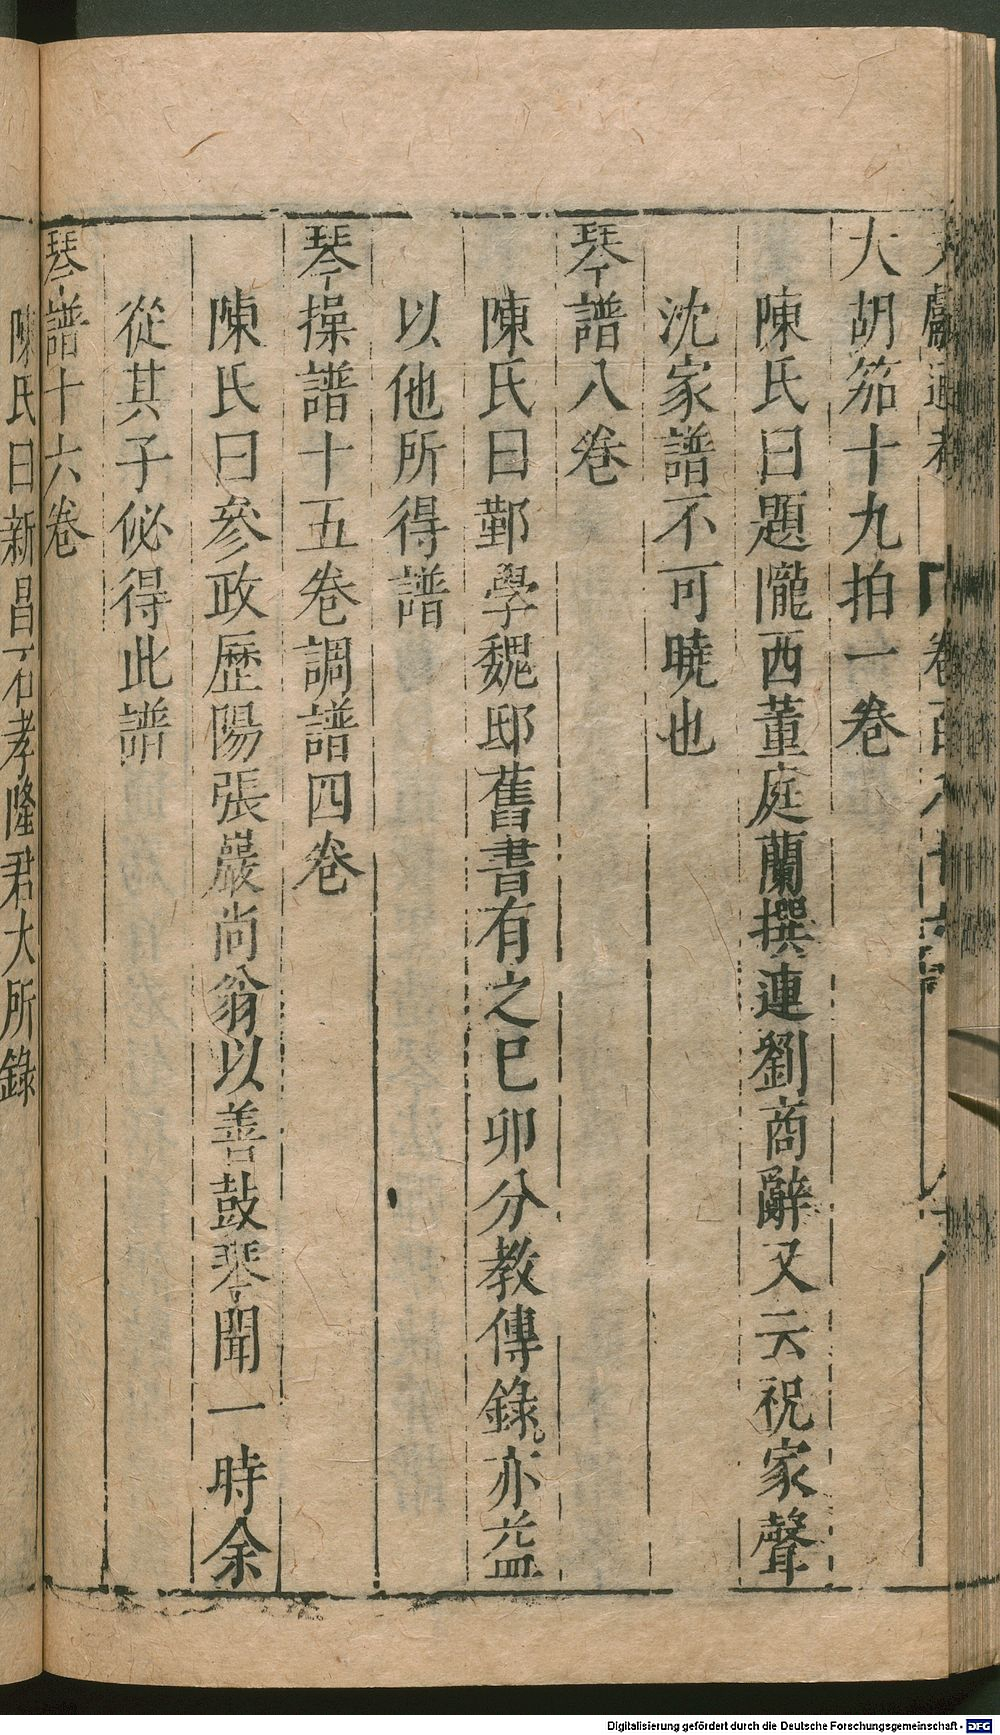 大胡笳十九拍一卷
陳氏曰題隴西董庭蘭撰連劉商辭又云祝家聲
沈家譜不可曉也
琴譜八卷
陳氏曰鄞學魏邸舊書有之已卯分教傳錄亦益
以他所得譜
琴操譜十五卷調譜四卷
陳氏曰參政歷陽張巖尚翁以善鼓琴聞一時余
從其子佖得此譜
琴譜十六卷
陳氏曰新昌石孝隆君大所錄
Digitalisierung gefördert durch die Deutsche Forschungsgemeinschaft - DFG